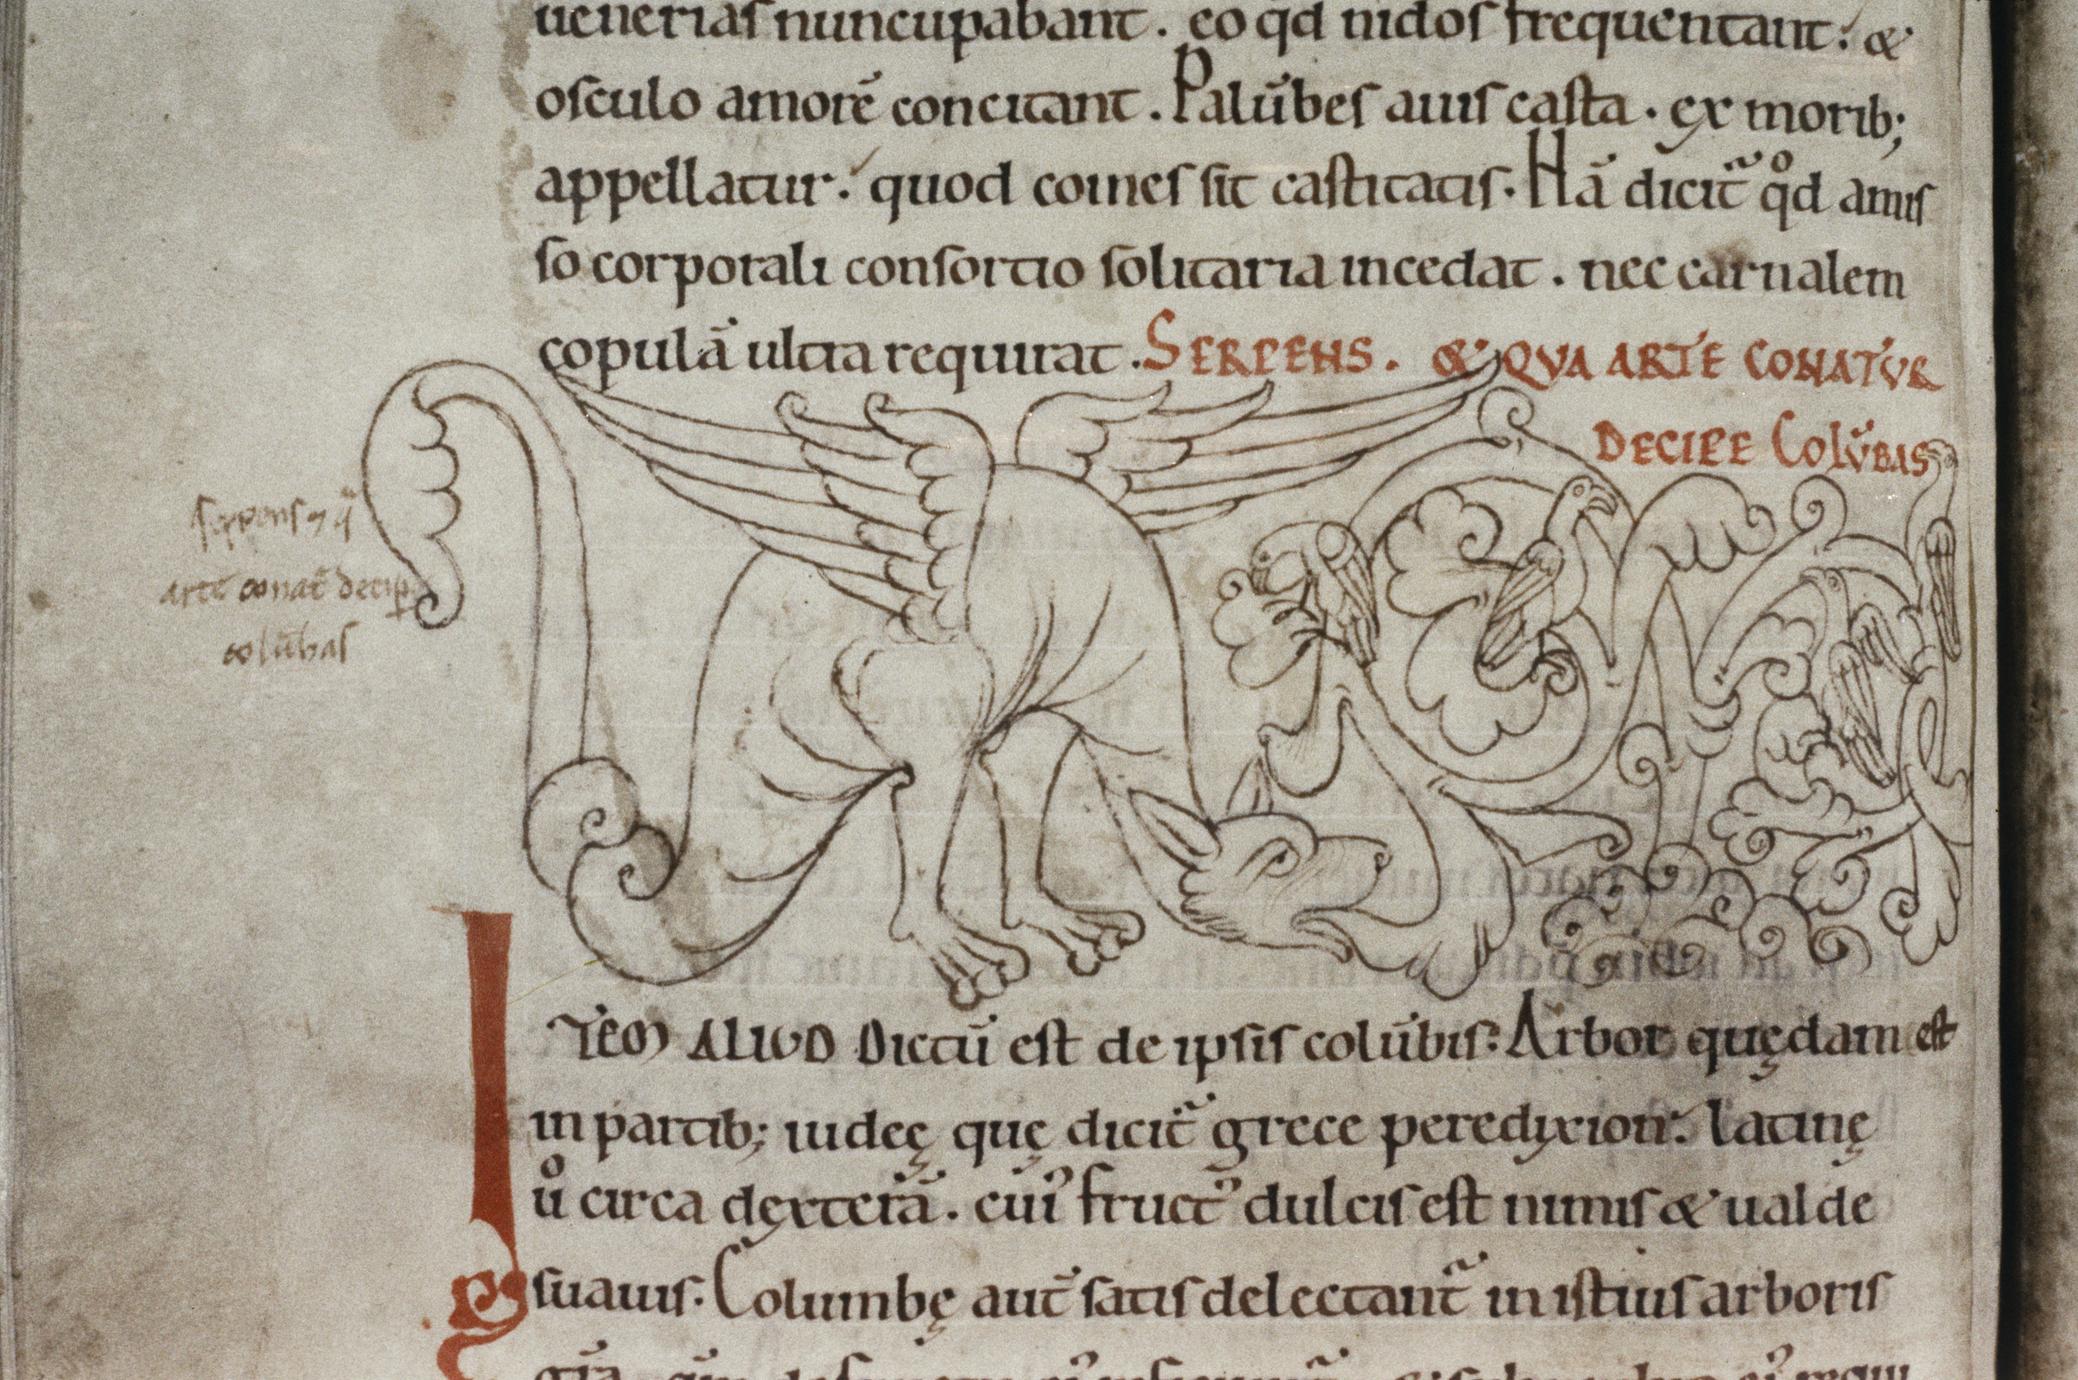 uenerias nuncupabant. eo qd nidos frequentant. &
osculo amorē concitant. Palūbes auis casta. ex morib;
appellatur. quod comes sit castitatis. Hā dicit̃ qͦd amis
so corporali consortio solitaria incedat. nec carnalem
copulā ultra requirat. SERPENS. & QVA ARTE CONATVR
DECIPE COLŪBAS
serpens ⁊ q̄
arte conat̃ decip̱
colūbas
ITEM ALIUD Dictū est de ipsis colūbis. Arbor quędam est
in partib; iudeę quę dicit̃ grece peredixion. latinę
uͦ circa dexterā. cui᾽ fruct᾽ dulcis est nimis & ualde
suauis. Columbę aut̄ satis delectant̃ in istius arboris